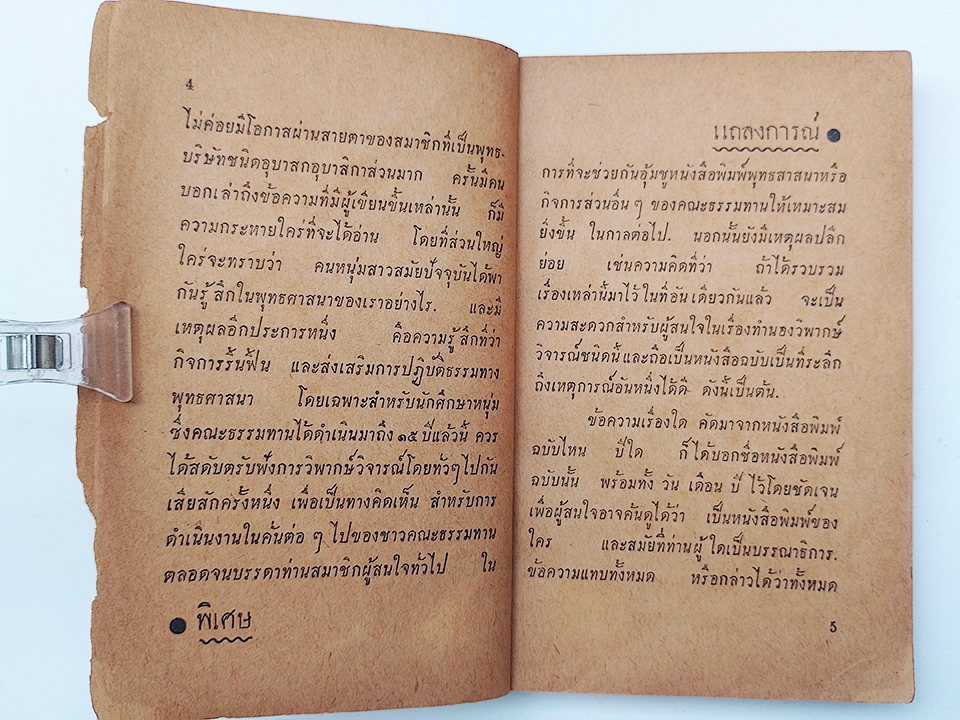 4
ไม่ค่อยมีโอกาสผ่านสายตาของสมาชิกที่เป็นพุทธ-
บริษัทชนิดอุบาสกอุบาสิกาส่วนมาก ครั้นมีคน
บอกเล่าถึงข้อความที่มีผู้เขียนขึ้นเหล่านั้น ก็มี
ความกระหายใคร่ที่จะได้อ่าน โดยที่ส่วนใหญ่
ใคร่จะทราบว่า คนหนุ่มสาวสมัยปัจจุบันได้พา
กันรู้สึกในพุทธศาสนาของเราอย่างไร. และมี
เหตุผลอีกประการหนึ่ง คือความรู้สึกที่ว่า
กิจการรื้นฟื้น และส่งเสริมการปฏิบัติธรรมทาง
พุทธศาสนา โดยเฉพาะสำหรับนักศึกษาหนุ่ม
ซึ่งคณะธรรมทานได้ดำเนินมาถึง ๑๕ ปีแล้วนี้ ควร
ได้สดับตรับฟังการวิพากษ์วิจารณ์โดยทั่วๆไปกัน
เสียสักครั้งหนึ่ง เพื่อเป็นทางคิดเห็น สำหรับการ
ดำเนินงานในคั่นต่อ ๆ ไปของชาวคณะธรรมทาน
ตลอดจนบรรดาท่านสมาชิกผู้สนใจทั่วไป ใน
● พิเศษ
แถลงการณ์ ●
การที่จะช่วยกันอุ้มชูหนังสือพิมพ์พุทธสาสนาหรือ
กิจการส่วนอื่น ๆ ของคณะธรรมทานให้เหมาะสม
ยิ่งขึ้น ในกาลต่อไป. นอกนั้นยังมีเหตุผลปลีก
ย่อย เช่นความคิดที่ว่า ถ้าได้รวบรวม
เรื่องเหล่านี้มาไว้ในที่อันเดียวกันแล้ว จะเป็น
ความสะดวกสำหรับผู้สนใจในเรื่องทำนองวิพากษ์
วิจารณ์ชนิดนี้ และถือเป็นหนังสือฉบับเป็นที่ระลึก
ถึงเหตุการณ์อันหนึ่งได้ดี ดังนี้เป็นต้น.
ข้อความเรื่องใด คัดมาจากหนังสือพิมพ์
ฉบับไหน ปีใด ก็ได้บอกชื่อหนังสือพิมพ์
ฉบับนั้น พร้อมทั้ง วัน เดือน ปี ไว้โดยชัดเจน
เพื่อผู้สนใจอาจค้นดูได้ว่า เป็นหนังสือพิมพ์ของ
ใคร และสมัยที่ท่านผู้ใดเป็นบรรณาธิการ.
ข้อความแทบทั้งหมด หรือกล่าวได้ว่าทั้งหมด
5